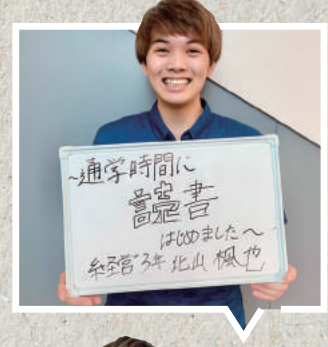 ~通学時間に
読書
はじめました~
経営3年 北山 楓也